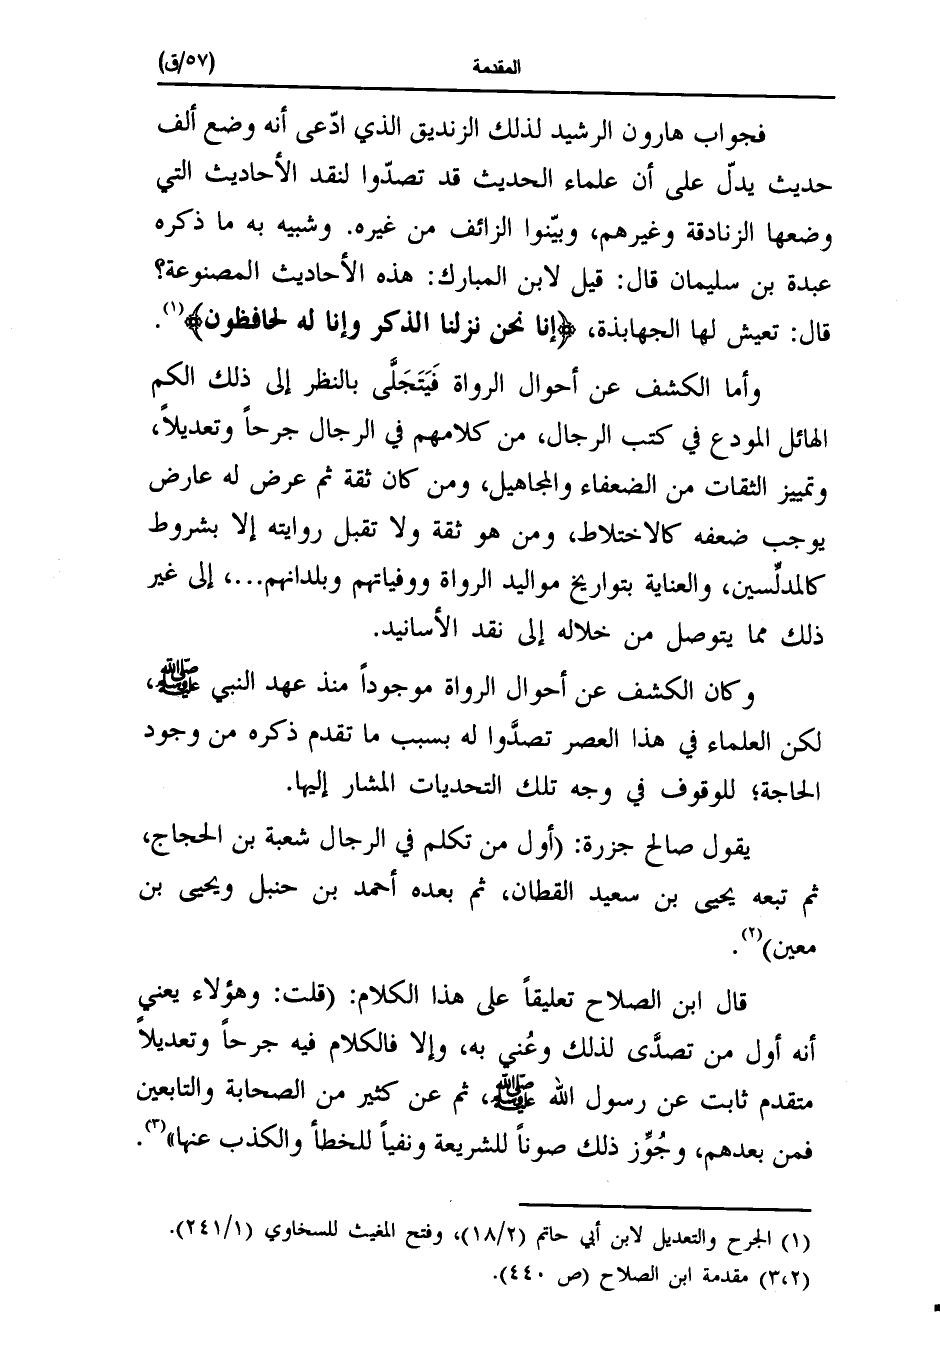 المقدمة (٥٧/ق)
فجواب هارون الرشيد لذلك الزنديق الذي ادّعى أنه وضع ألف
حديث يدلّ على أن علماء الحديث قد تصدّوا لنقد الأحاديث التي
وضعها الزنادقة وغيرهم، وبيّنوا الزائف من غيره. وشبيه به ما ذكره
عبدة بن سليمان قال: قيل لابن المبارك: هذه الأحاديث المصنوعة؟
قال: تعيش لها الجهابذة، ﴿إنا نحن نزلنا الذكر وإنا له لحافظون﴾(١).
وأما الكشف عن أحوال الرواة فَيَتَجَلَّى بالنظر إلى ذلك الكم
الهائل المودع في كتب الرجال، من كلامهم في الرجال جرحاً وتعديلاً،
وتمييز الثقات من الضعفاء والمجاهيل، ومن كان ثقة ثم عرض له عارض
يوجب ضعفه كالاختلاط، ومن هو ثقة ولا تقبل روايته إلا بشروط
كالمدلِّسين، والعناية بتواريخ مواليد الرواة ووفياتهم وبلدانهم...، إلى غير
ذلك مما يتوصل من خلاله إلى نقد الأسانيد.
وكان الكشف عن أحوال الرواة موجوداً منذ عهد النبي ﷺ،
لكن العلماء في هذا العصر تصدَّوا له بسبب ما تقدم ذكره من وجود
الحاجة؛ للوقوف في وجه تلك التحديات المشار إليها.
يقول صالح جزرة: (أول من تكلم في الرجال شعبة بن الحجاج،
ثم تبعه يحيى بن سعيد القطان، ثم بعده أحمد بن حنبل ويحيى بن
معين)(٢).
قال ابن الصلاح تعليقاً على هذا الكلام: (قلت: وهؤلاء يعني
أنه أول من تصدَّى لذلك وعُني به، وإلا فالكلام فيه جرحاً وتعديلاً
متقدم ثابت عن رسول الله ﷺ، ثم عن كثير من الصحابة والتابعين
فمن بعدهم، وجُوِّز ذلك صوناً للشريعة ونفياً للخطأ والكذب عنها»(٣).
(١) الجرح والتعديل لابن أبي حاتم (١٨/٢)، وفتح المغيث للسخاوي (٢٤١/١).
(٣،٢) مقدمة ابن الصلاح (ص ٤٤٠).